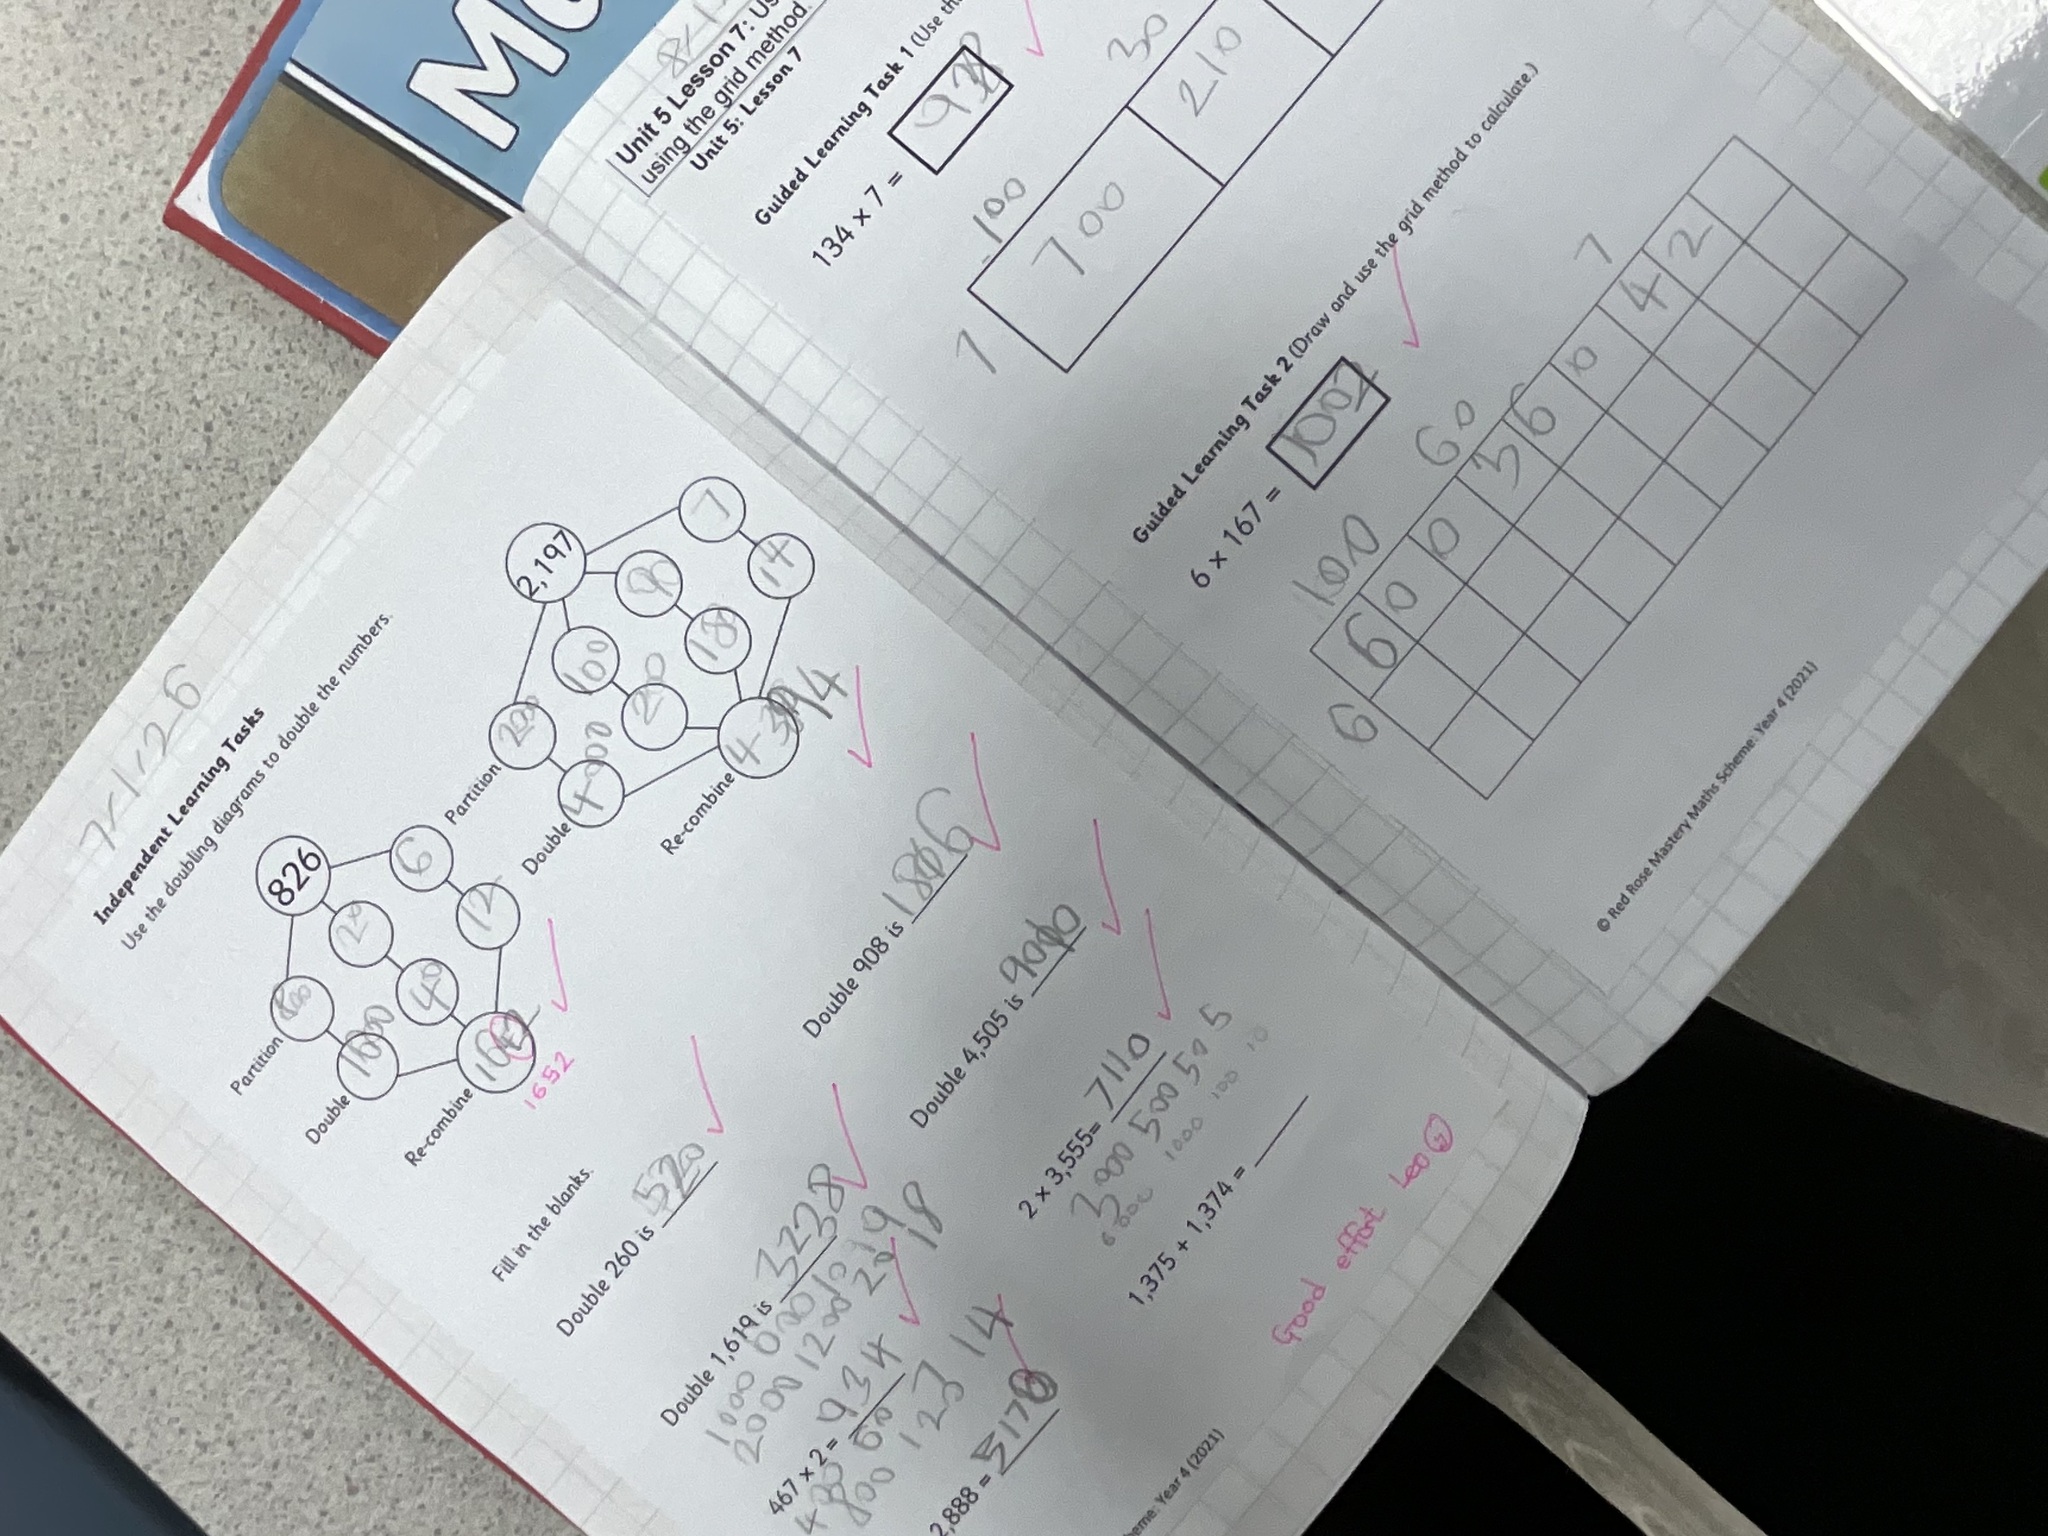 7/1/26
Independent Learning Tasks
Use the doubling diagrams to double the numbers.
826
Partition
800 20 6
Double
1600 40 12
Re-combine
1652
2,197
Partition
100 90 7
Double
4000 200 180 14
Re-combine
4394
Fill in the blanks.
Double 260 is 520
Double 908 is 1816
Double 1,619 is 3238
Double 4,505 is 9010
467 x 2 = 934
2 x 3,555= 7110
3000 500 50 5
6000 1000 100 10
2,888 =
1,375 + 1,374 =
Good effort Leo
heme: Year 4 (2021)
Unit 5 Lesson 7:
using the grid method.
Unit 5: Lesson 7
Guided Learning Task 1 (Use
134 x 7 = 938
100 30
7 700 210
Guided Learning Task 2 (Draw and use the grid method to calculate.)
6 x 167 = 1002
100 60 7
6 600 360 42
© Red Rose Mastery Maths Scheme: Year 4 (2021)